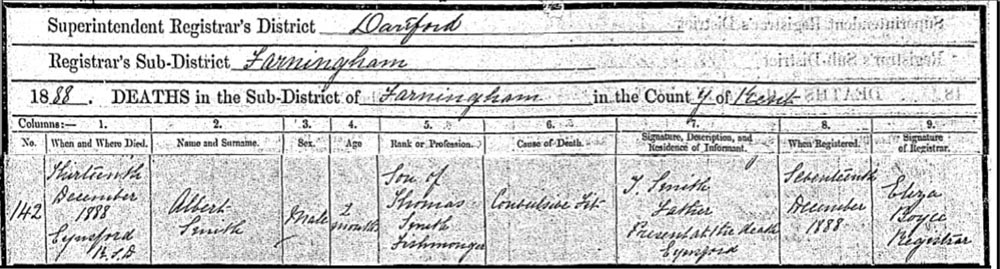 Superintendent Registrar's District Dartford
Registrar's Sub-District Farningham
1888. DEATHS in the Sub-District of Farningham in the County of Kent
Columns:— 1. 2. 3. 4. 5. 6. 7. 8. 9.
No. When and Where Died. Name and Surname. Sex. Age Rank or Profession. Cause of Death. Signature, Description, and Residence of Informant. When Registered. Signature of Registrar.
142
Thirteenth
December
1888
Eynsford
R.S.D
Albert
Smith
Male
2
months
Son of
Thomas
Smith
Fishmonger
Convulsive Fit
T. Smith
Father
Present at the death
Eynsford
Seventeenth
December
1888
Eliza
Boyce
Registrar